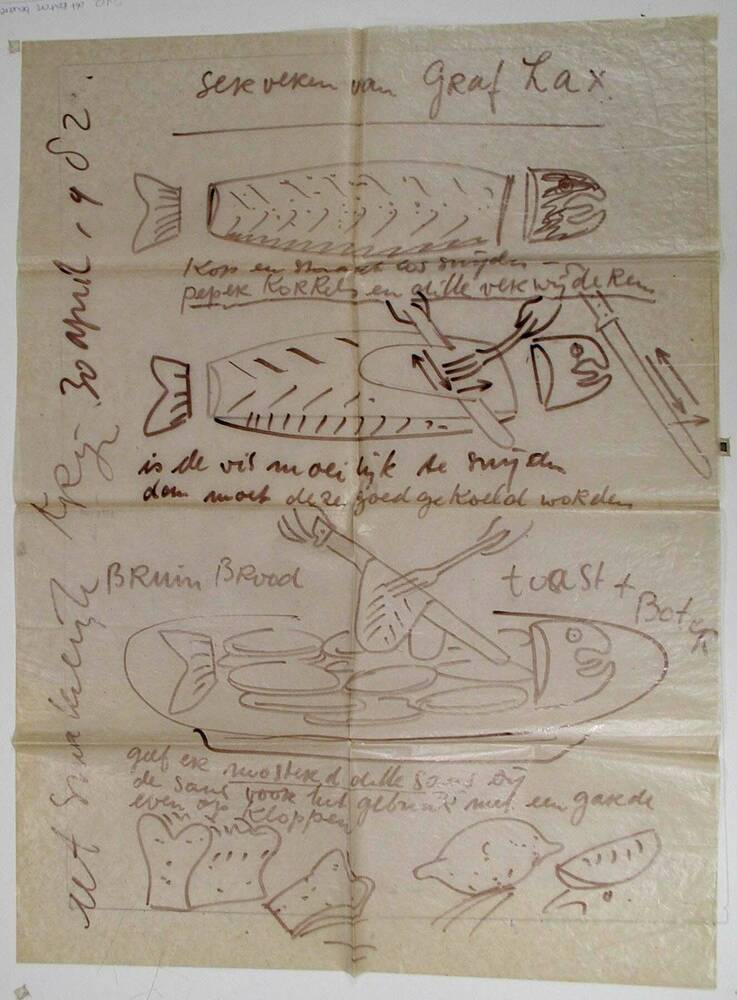 serveren van Graf Lax
Kop en staart los snijden -
peper korrels en dille verwijderen
is de vis moeilijk te snijden
dan moet deze goed gekoeld worden
Bruin Brood
toast + Boter
geef er mosterd dille saus bij
de saus voor het gebruik met een garde
even op kloppen
eet smakelijk 30 april 1982.